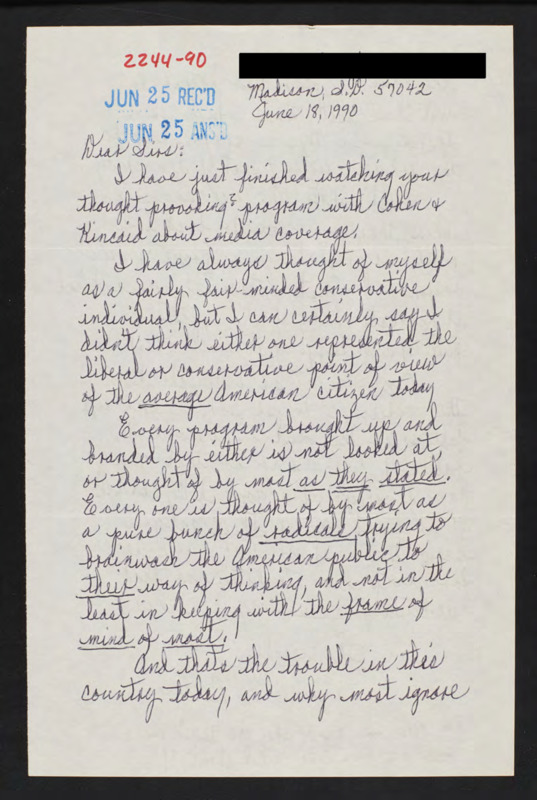 2244-90
JUN 25 REC'D
JUN 25 ANS'D
Madison, S.D. 57042
June 18, 1990
Dear Sirs:
I have just finished watching your
thought provoking program with Cohen &
Kincaid about media coverage.
I have always thought of myself
as a fairly fair-minded conservative
individual, but I can certainly say I
didn't think either one represented the
liberal or conservative point of view
of the average American citizen today
Every program brought up and
branded by either is not looked at,
or thought of by most as they stated.
Every one is thought of by most as
a pure bunch of radicals trying to
brainwash the American public to
their way of thinking, and not in the
least in keeping with the frame of
mind of most.
And that's the trouble in this
country today, and why most ignore